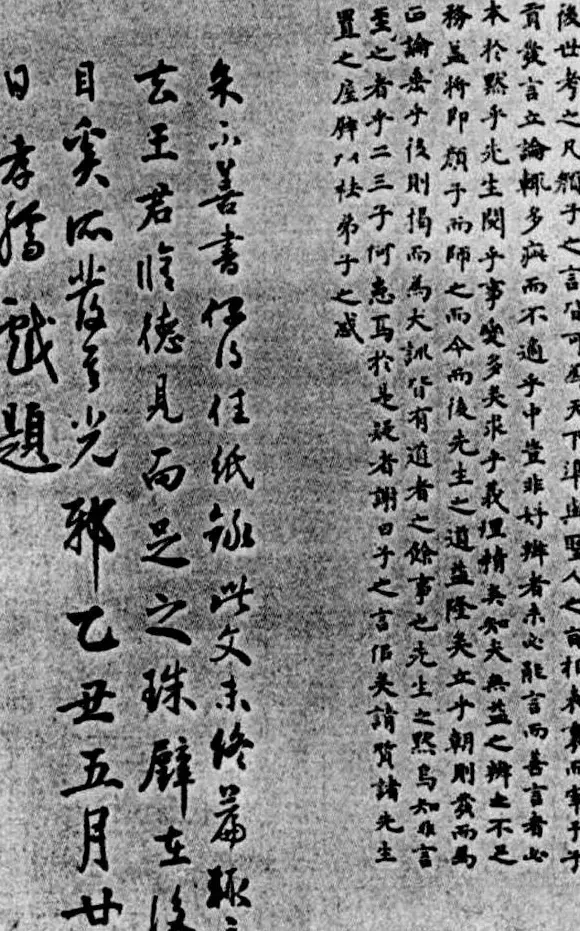 後世考之凡顏子之言皆可為天下準與聖人之言相表裏而宰予子
貢發言立論輒多疵而不適乎中豈非好辯者未必能言而善言者必
本於默乎先生閱乎事變多矣求乎義理精矣知夫無益之辯之不足
務益將即顏子而師之而今而後先生之道益隆矣立乎朝則發而為
正論垂乎後則揭而為大訓皆有道者之餘事也先生之默烏知非言
至之者乎二三子何惑焉於是疑者謝曰子之言信矣請質諸先生
置之屋壁以祛弟子之惑
余不善書偶得佳紙錄此文未終篇輒
去王君脩德見而足之珠璧在後
目奚所發其光邪乙丑五月廿
日孝孺戲題